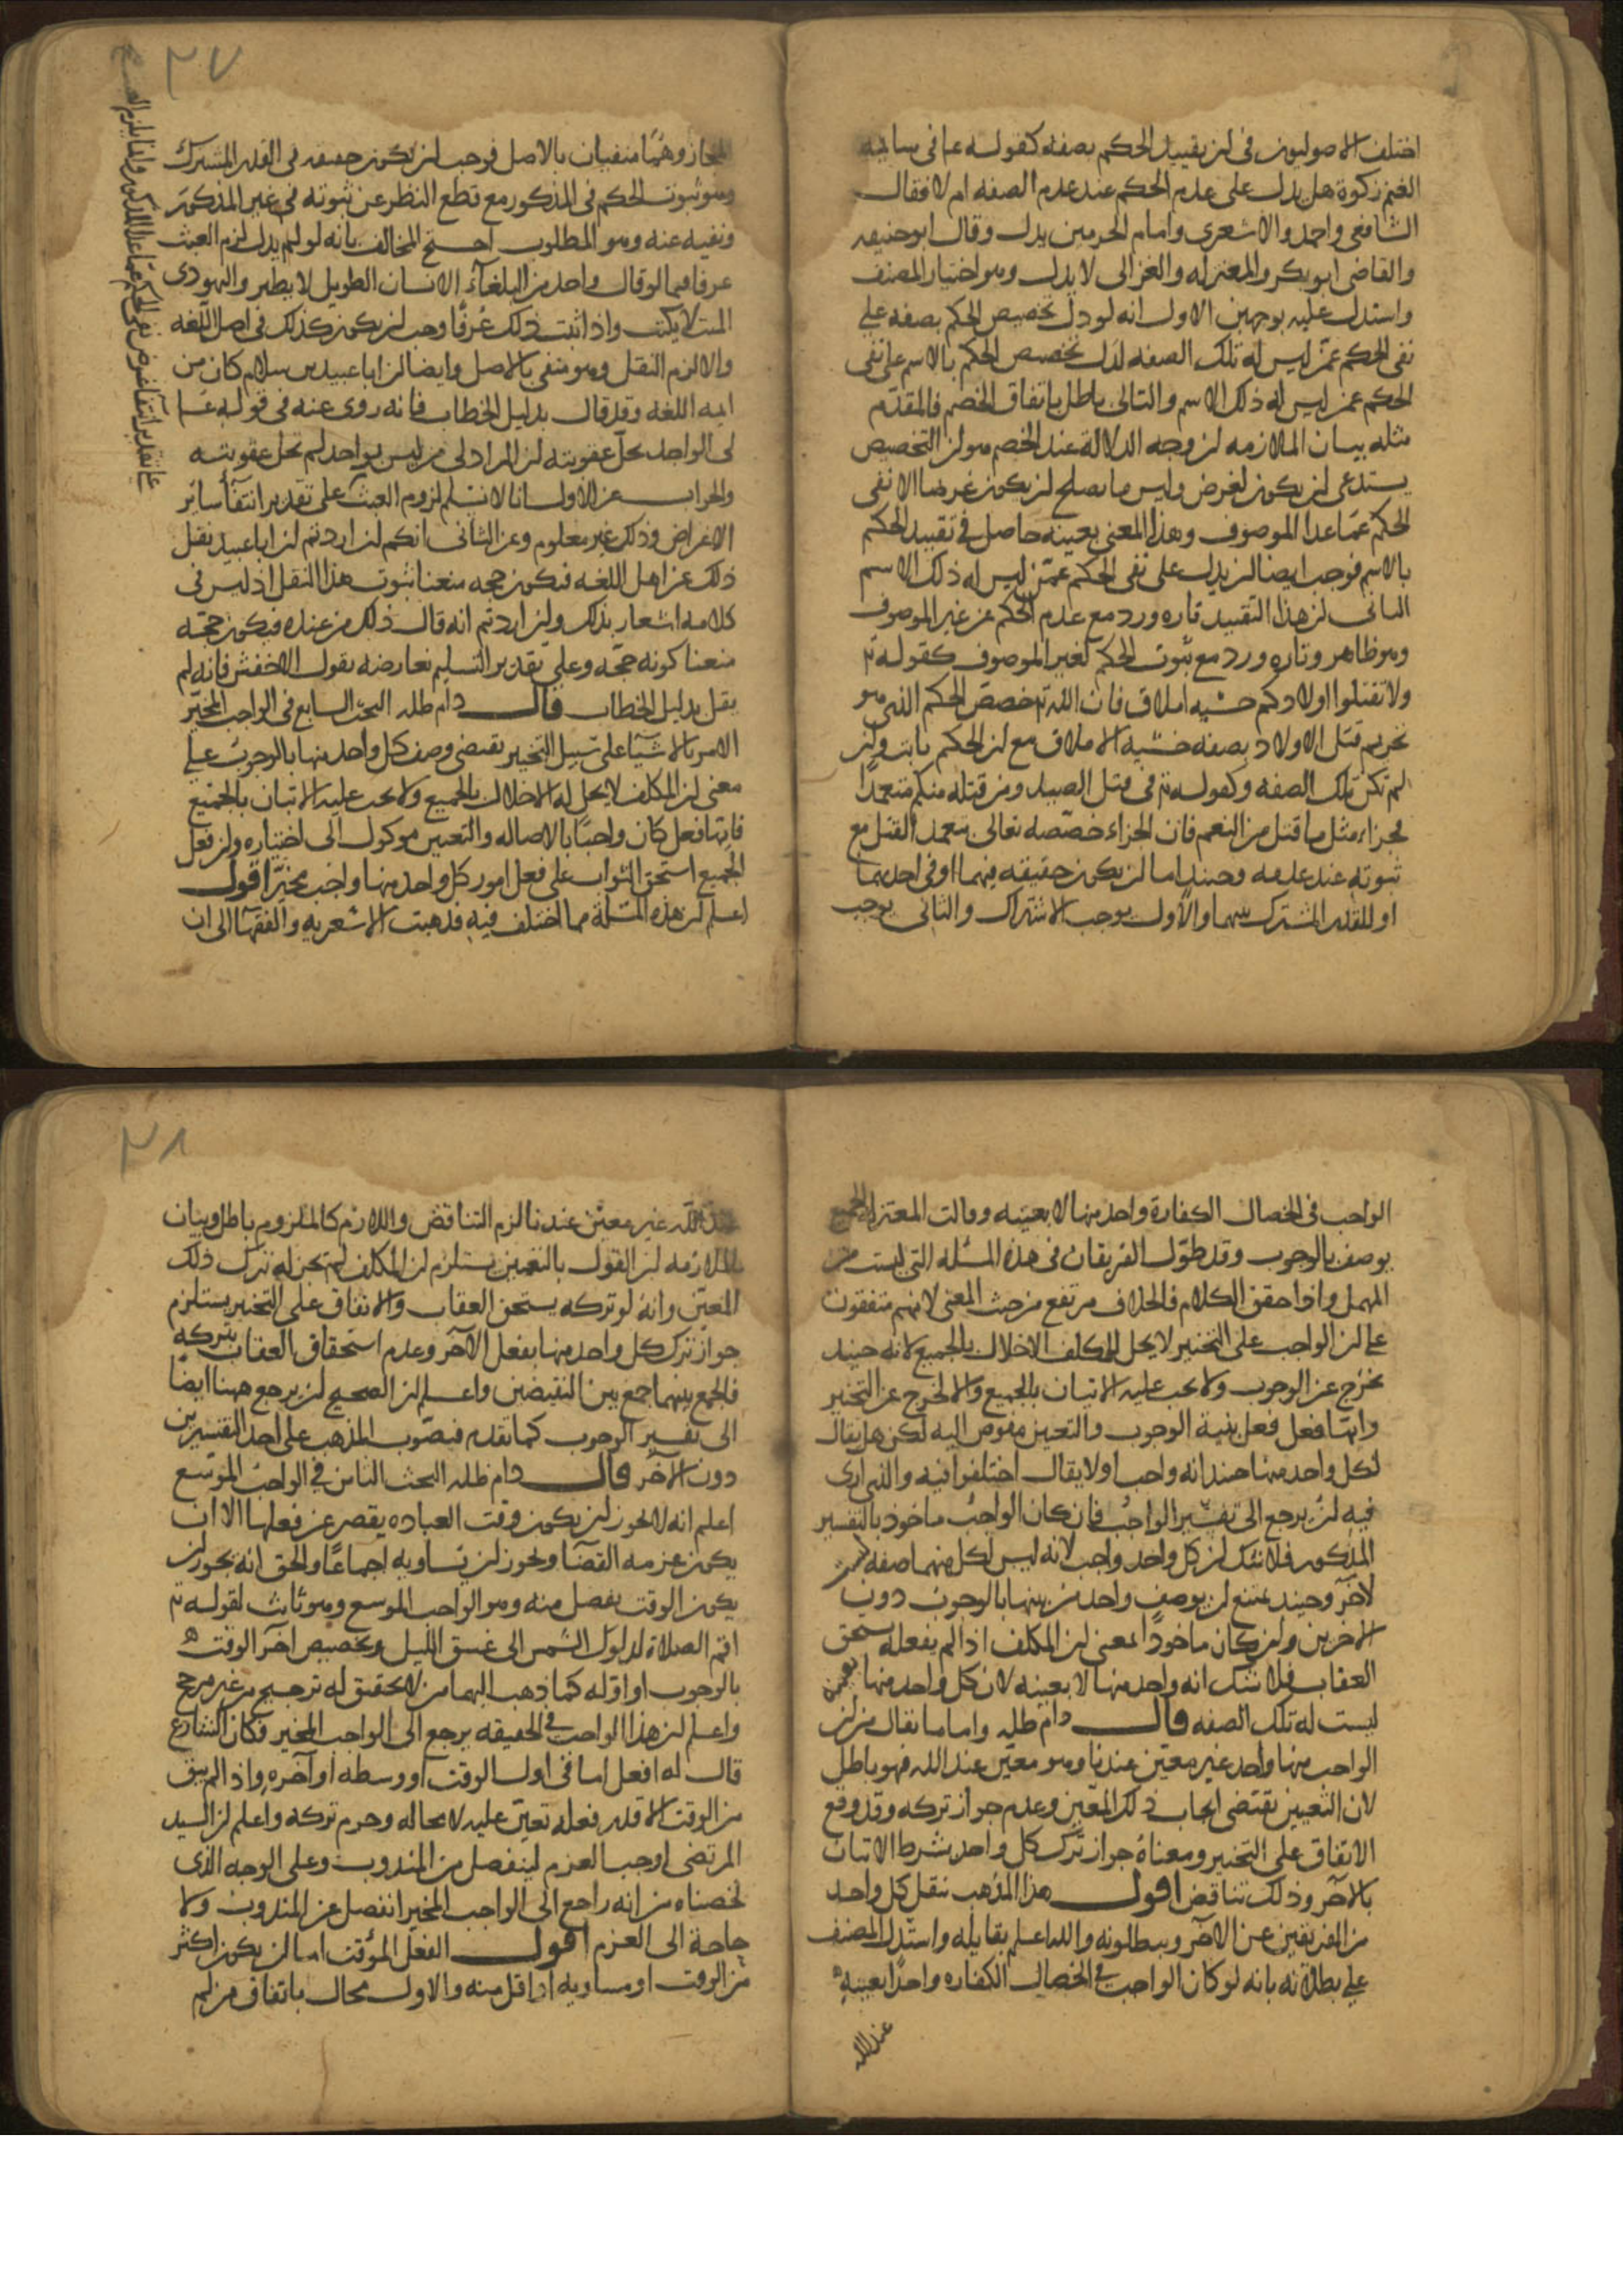 اختلف الاصوليون في ان تقييد الحكم بصفه كقوله عم في سايمه
الغنم زكوة هل يدل على عدم الحكم عند عدم الصفه ام لا فقال
الشافعي واحمد والاشعري وامام الحرمين يدل وقال ابو حنيفه
والقاضي ابو بكر والمعتزله والغزالي لا يدل وهو اختيار المصنف
واستدل عليه بوجهين الاول انه لو دل تخصيص الحكم بصفه علي
نفي الحكم عمن ليس له تلك الصفه لدل تخصيص الحكم بالاسم على نفي
الحكم عمن ليس له ذلك الاسم والتالي باطل باتفاق الخصم فالمقدم
مثله بيان الملازمه ان وجه الدلالة عند الخصم هو ان التخصيص
يستدعي ان يكون لغرض وليس ما يصلح ان يكون غرضا الا نفي
الحكم عما عدا الموصوف وهذا المعنى بعينه حاصل في تقييد الحكم
بالاسم فوجب ايضا ان يدل على نفي الحكم عمن ليس له ذلك الاسم
الثاني ان هذا التقييد تاره ورد مع عدم الحكم عن غير الموصوف
وهو ظاهر وتاره ورد مع ثبوت الحكم لغير الموصوف كقوله تع
ولا تقتلوا اولادكم خشيه املاق فان الله تع خصص الحكم الذي هو
تحريم قتل الاولاد بصفه خشيه الاملاق مع ان الحكم ثابت وان
لم تكن تلك الصفه وكقوله تع في قتل الصيد ومن قتله منكم متعمدا
فجزاء مثل ما قتل من النعم فان الجزاء خصصه تعالى بتعمد القتل مع
ثبوته عند عدمه وحينئذ اما ان يكون حقيقه فيهما او في احدهما
او للقدر المشترك بينهما والاول يوجب الاشتراك والثاني يوجب
المجاز وهما منفيان بالاصل فوجب ان يكون حقيقه في القدر المشترك
وهو ثبوت الحكم في المذكور مع قطع النظر عن ثبوته في غير المذكور
ونفيه عنه وهو المطلوب احتج المخالف بانه لو لم يدل لزم العبث
عرفا فيما لو قال واحد من البلغآء الانسان الطويل لا يطير واليهودى
الميت لا يكتب واذا ثبت ذلك عرفا وجب ان يكون كذلك في اصل اللغه
والا لزم النقل وهو منفي بالاصل وايضا ان ابا عبيد بن سلام كان من
ايمه اللغه وقد قال بدليل الخطاب فانه روى عنه في قوله عم
لي الواجد يحل عقوبته ان المراد لي من ليس بواجد لم تحل عقوبته
والجواب عن الاول انا لا نسلم لزوم العبث على تقدير انتفآء ساير
الاغراض وذلك غير معلوم وعن الثاني انكم ان اردتم ان ابا عبيد نقل
ذلك عن اهل اللغه فيكون حجه منعنا ثبوت هذا النقل اذ ليس في
كلامه اشعار بذلك وان اردتم انه قال ذلك من عنده فيكون حجه
منعنا كونه حجه وعلى تقدير التسليم نعارضه بقول الاخفش فانه لم
يقل بدليل الخطاب قال دام ظله البحث السابع في الواجب المخيّر
الامر بالاشيآ على سبيل التخيير يقتضى وصف كل واحد منها بالوجوب علي
معنى ان المكلف لا يحل له الاخلال بالجميع ولا يجب عليه الاتيان بالجميع
فايها فعل كان واجبا بالاصاله والتعيين موكول الى اختياره وان فعل
الجميع استحق الثواب على فعل امور كل واحد منها واجب مخيرا اقول
اعلم ان هذه المسئلة مما اختلف فيه فذهبت الاشعريه والفقهآ الى ان
الواجب في الخصال الكفارة واحد منها لا بعينه وقالت المعتزله الجميع
يوصف بالوجوب وقد طوّل الفريقان في هذه المسئله التي ليست من
المهمل واذا حقق الكلام فالخلاف مرتفع من حيث المعنى لانهم متفقون
على ان الواجب على التخيير لا يحل للمكلف الاخلال بالجميع لانه حينئذ
يخرج عن الوجوب ولا يجب عليه الاتيان بالجميع والا لخرج عن التخيير
وايها فعل فعل بنية الوجوب والتعيين مفوض اليه لكن هل يقال
لكل واحد منها حينئذ انه واجب او لا يقال اختلفوا فيه والذي ارى
فيه ان يرجع الى تفسير الواجب فان كان الواجب ماخوذ بالتفسير
المذكور فلا شك ان كل واحد واجب لانه ليس لكل منهما صفه ليس
لآخر وحينئذ يمتنع ان يوصف واحد من بينها بالوجوب دون
الاخرين وان كان ماخوذا لمعنى ان المكلف اذا لم يفعله يستحق
العقاب فلا شك انه واحد منها لا بعينه لان كل واحد منها بعينه
ليست له تلك الصفه قال دام ظله واما ما يقال من ان
الواجب منها واحد غير معين عندنا وهو معين عند الله فهو باطل
لان التعيين يقتضي ايجاب ذلك المعين وعدم جواز تركه وقد وقع
الاتفاق على التخيير ومعناه جواز ترك كل واحد بشرط الاتيان
بالآخر وذلك تناقض اقول هذا المذهب نقل كل واحد
من الفريقين عن الآخر ويبطلونه والله اعلم بقايله واستدل المصنف
علي بطلانه بانه لو كان الواجب في الخصال الكفاره واحدا بعينه
عند الله
عند الله غير معين عندنا لزم التناقض واللازم كالملزوم باطل وبيان
الملازمه ان القول بالتعيين يستلزم ان المكلف لم يجز له ترك ذلك
المعين وانه لو تركه يستحق العقاب والاتفاق على التخيير يستلزم
جواز ترك كل واحد منها بفعل الآخر وعدم استحقاق العقاب بتركه
فالجمع بينهما جمع بين النقيضين واعلم ان الصحيح ان يرجع ههنا ايضا
الى تفسير الوجوب كما تقدم فيصوّب المذهب على احد التفسيرين
دون الآخر قال دام ظله البحث الثامن في الواجب الموسّع
اعلم انه لا يجوز ان يكون وقت العباده يقصر عن فعلها الا ان
يكون غرضه القضآ ويجوز ان يساويه اجماعا والحق انه يجوز ان
يكون الوقت يفضل منه وهو الواجب الموسع وهو ثابت لقوله تع
اقم الصلاة لدلوك الشمس الى غسق الليل وتخصيص آخر الوقت
بالوجوب او اوله كما ذهب اليهما من لا تحقيق له ترجيح من غير مرجح
واعلم ان هذا الواجب في الحقيقه يرجع الى الواجب المخير فكان الشارع
قال له افعل اما في اول الوقت او وسطه او آخره واذا لم يبق
من الوقت الا قدر فعله تعيّن عليه لا محاله وحرم تركه واعلم ان السيد
المرتضى اوجب العزم لينفصل من المندوب وعلى الوجه الذى
لخصناه من انه راجع الى الواجب المخير انفصل عن المندوب ولا
حاجة الى العزم اقول الفعل المؤقت اما ان يكون اكثر
من الوقت او مساويه او اقل منه والاول محال باتفاق من لم